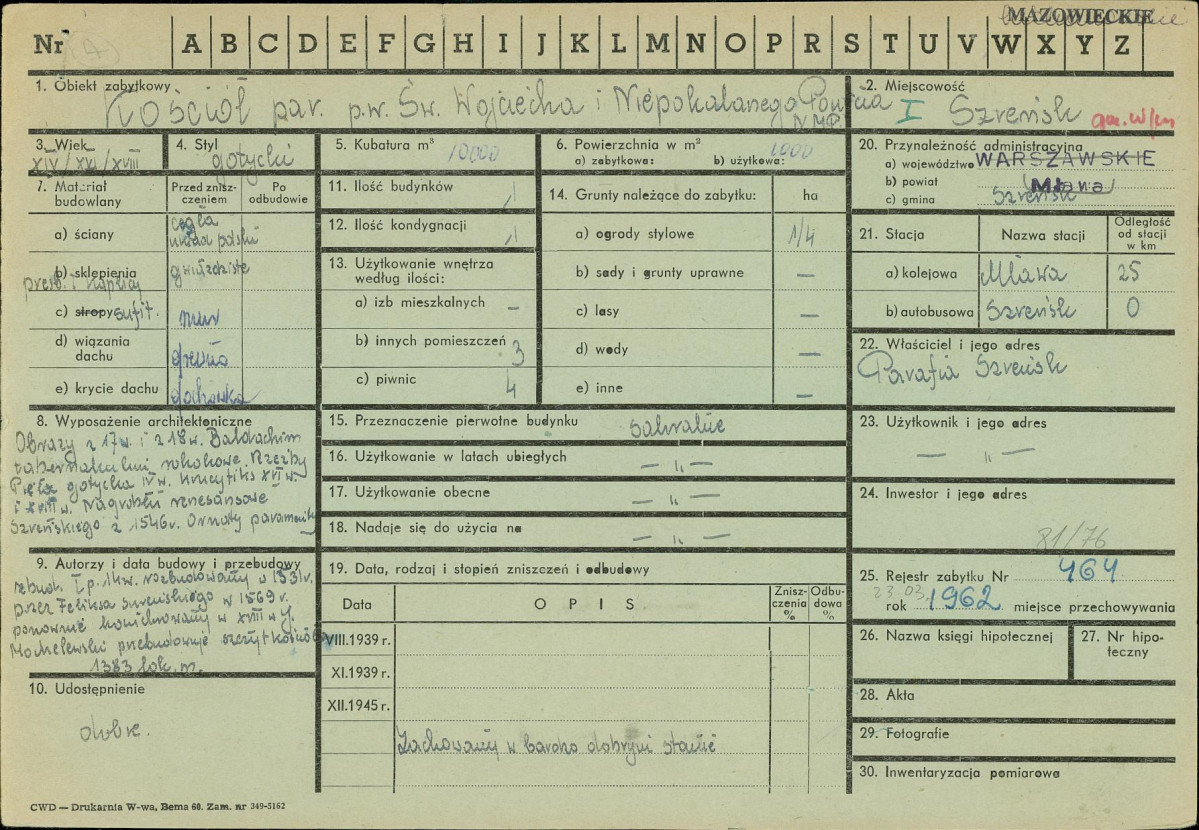 MAZOWIECKIE
Nr A B C D E F G H I J K L M N O P R S T U V W X Y Z
1. Obiekt zabytkowy
Kościół par. p.w. Św. Wojciecha i Niepokalanego Poczęcia
N.M.P.
2. Miejscowość
I Szreńsk
3. Wiek
XIV/XVI/XVIII
4. Styl
gotycki
5. Kubatura m³ 10000
6. Powierzchnia w m²
a) zabytkowa: b) użytkowa: 1000
20. Przynależność administracyjna
a) województwo WARSZAWSKIE
b) powiat Mława
c) gmina Szreńsk
7. Materiał budowlany
Przed zniszczeniem
Po odbudowie
a) ściany cegła
układ polski
b) sklepienia gwiaździste
prezb. i kaplicy
c) stropy sufit. mur
d) wiązania dachu drewno
e) krycie dachu dachówka
11. Ilość budynków 1
12. Ilość kondygnacji 1
13. Użytkowanie wnętrza według ilości:
a) izb mieszkalnych –
b) innych pomieszczeń 3
c) piwnic 4
14. Grunty należące do zabytku: ha
a) ogrody stylowe 1/4
b) sady i grunty uprawne –
c) lasy –
d) wody –
e) inne –
21. Stacja Nazwa stacji Odległość od stacji w km
a) kolejowa Mława 25
b) autobusowa Szreńsk 0
22. Właściciel i jego adres
Parafia Szreńsk
8. Wyposażenie architektoniczne
Obrazy z 17w. i z 18w. Baldachim
rokokowe. Rzeźby
gotycka XVI w.
i XVIII w. Nagrobki renesansowe
Szreńskiego z 1546r. Ornaty
15. Przeznaczenie pierwotne budynku sakralne
16. Użytkowanie w latach ubiegłych – „ –
17. Użytkowanie obecne – „ –
18. Nadaje się do użycia na – „ –
23. Użytkownik i jego adres
– „ –
24. Inwestor i jego adres
81/76
9. Autorzy i data budowy i przebudowy
I p. 14w. rozbudowany w 1531r.
przez Feliksa Szreńskiego w 1569 r.
ponownie w XVIII w J.
przebudowuje szczyt kościoła
19. Data, rodzaj i stopień zniszczeń i odbudowy
Data OPIS Zniszczenia % Odbudowa %
VIII.1939 r.
XI.1939 r.
XII.1945 r.
Zachowany w bardzo dobrym stanie
25. Rejestr zabytku Nr 464
23.03.
rok 1962 miejsce przechowywania
26. Nazwa księgi hipotecznej
27. Nr hipoteczny
28. Akta
29. Fotografie
30. Inwentaryzacja pomiarowa
10. Udostępnienie
dobre.
CWD — Drukarnia W-wa, Bema 60. Zam. nr 349-5162